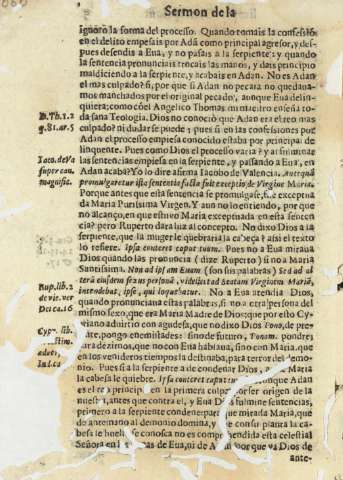 Sermon de la
ignorò la forma del processo. Quando tomais la confessiõ
en el delito empesais por Adã como principal agresor, y des
pues desendis a Eua, y no pasais a la serpiente: y quando
la sentencia pronunciais trocais las manos, y dais principio
maldiciendo a la serpiente, y acabais en Adan. No es Adan
el mas culpado? si, por que si Adan no pecara no quedaua
mos manchados por el original pecado, aunque Eua delin-
quiera; como cõ el Angelico Thomas mi maestro enseña to
da sana Teologia. Dios no conociò que Adan era el reo mas
culpado? ni dudar se puede; pues si en las confisiones por
Adan el processo empiesa conocido estaba por principal de
linquente. Pues como Dios el processo varia? y al fulminar
las sentencias empiesa en la serpiente, y pasando a Eua, en
Adan acaba? Yo lo dire afirma Iacobo de Valencia. Antequã
promulgaretur ista sententia facta fuit exceptio de Virgine Maria.
Porque antes que esta sentencia se promulgase, fue excepta
da Maria Purissima Virgen. Y aun no lo entiendo, por que
no alcanço, en que estuvo Maria exceptuada en esta senten
cia? pero Ruperto dara luz al concepto. No dixo Dios a la
serpiente, que la muger le quebraria la cabeça? asi el texto
lo refiere. Ipsa conteret caput tuum. Pues no a Eua miraua
Dios quando las pronuncia (dize Ruperto) si no a Maria
Santissima. Non ad ipsam Euam (son sus palabras) Sed ad al
terã eiusdem sexus personã, videlicet ad beatam Virginem Mariã,
intendebat, ipse, qui loquebatur. No a Eua atendia Dios,
quando pronunciara estas palabras, si no a otra persona del
mismo sexo, que era Maria Madre de Dios: por esto Cy
priano aduirtiò con agudeza, que no dixo Dios Pono, de pre-
sente, pongo enemistades: sino de futuro, Ponam. pondre;
para dezirnos, que no con Eua hablaua, sino con Maria, que
en los venideros tiempos la destinaba, para terror del demo-
nio. Pues si a la serpiente a de condenar Dios, Maria
la cabesa le quiebre. Ipsa conteret caput tuum. aunque Adan
es el reo principal en la primera culpa por ser origen de la
nuestra, antes que contra el, y Eua Dios fulmine sentencias,
primero a la serpiente condene para que mirada Maria, que
de antemano al demonio domina, y que con su planta la ca-
besa le huella se conosca no es comprendida esta celestial
Señora en las culpas de Eua, ni de Adan por que va Dios de
ante-
D. Th. 1. 2
q. 81. ar. 5
Iaco. de Va
super can.
magnific.
Rup. lib. 2
de vic. ver
Dei ca. 16
Cyp. lib.